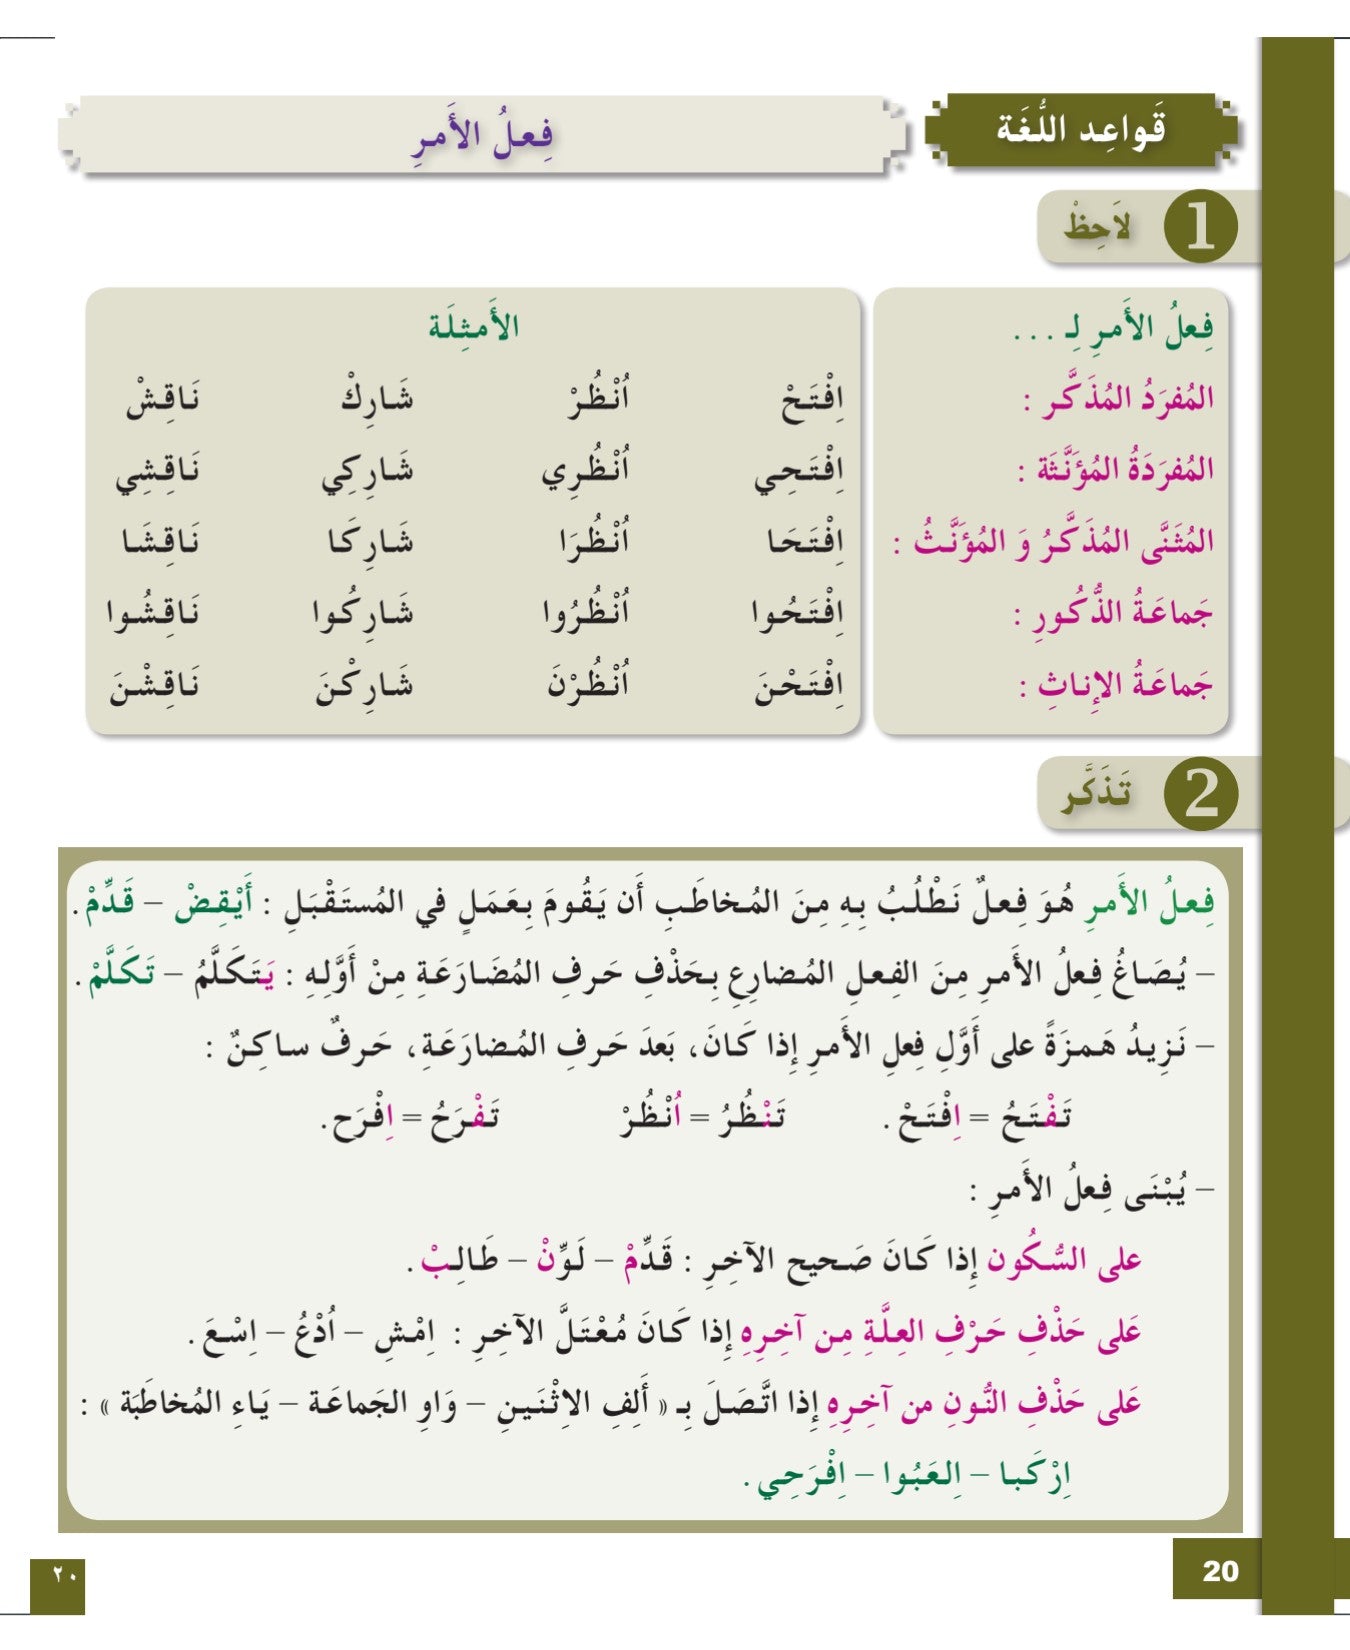 قَواعِد اللُّغَة
فِعلُ الأَمرِ
1 لاَحِظْ
فِعلُ الأَمرِ لِـ . . . الأَمثِلَة
المُفرَدُ المُذَكَّر : اِفْتَحْ اُنْظُرْ شَارِكْ نَاقِشْ
المُفرَدَةُ المُؤَنَّثَة : اِفْتَحِي اُنْظُرِي شَارِكِي نَاقِشِي
المُثَنَّى المُذَكَّرُ وَ المُؤَنَّثُ : اِفْتَحَا اُنْظُرَا شَارِكَا نَاقِشَا
جَماعَةُ الذُّكُورِ : اِفْتَحُوا اُنْظُرُوا شَارِكُوا نَاقِشُوا
جَماعَةُ الإِناثِ : اِفْتَحْنَ اُنْظُرْنَ شَارِكْنَ نَاقِشْنَ
2 تَذَكَّر
فِعلُ الأَمرِ هُوَ فِعلٌ نَطْلُبُ بِهِ مِنَ المُخاطَبِ أَن يَقُومَ بِعَمَلٍ في المُستَقْبَلِ : أَيْقِضْ – قَدِّمْ .
– يُصَاغُ فِعلُ الأَمرِ مِنَ الفِعلِ المُضارِعِ بِحَذْفِ حَرفِ المُضَارَعَةِ مِنْ أَوَّلِهِ : يَتَكَلَّمُ – تَكَلَّمْ .
– نَزِيدُ هَمزَةً على أَوَّلِ فِعلِ الأَمرِ إِذا كَانَ، بَعدَ حَرفِ المُضارَعَةِ، حَرفٌ ساكِنٌ :
تَفْتَحُ = اِفْتَحْ . تَنْظُرُ = اُنْظُرْ تَفْرَحُ = اِفْرَح .
– يُبْنَى فِعلُ الأَمرِ :
على السُّكُون إِذا كَانَ صَحيح الآخِرِ : قَدِّمْ – لَوِّنْ – طَالِبْ .
عَلى حَذْفِ حَرْفِ العِلَّةِ مِن آخِرِهِ إِذا كَانَ مُعْتَلَّ الآخِرِ : اِمْشِ – اُدْعُ – اِسْعَ .
عَلى حَذْفِ النُّونِ من آخِرِهِ إِذا اتَّصَلَ بِـ « أَلِفِ الاِثْنَينِ – وَاوِ الجَماعَة – يَاءِ المُخاطَبَة » :
اِرْكَبا – اِلعَبُوا – اِفْرَحِي .
20
٢٠